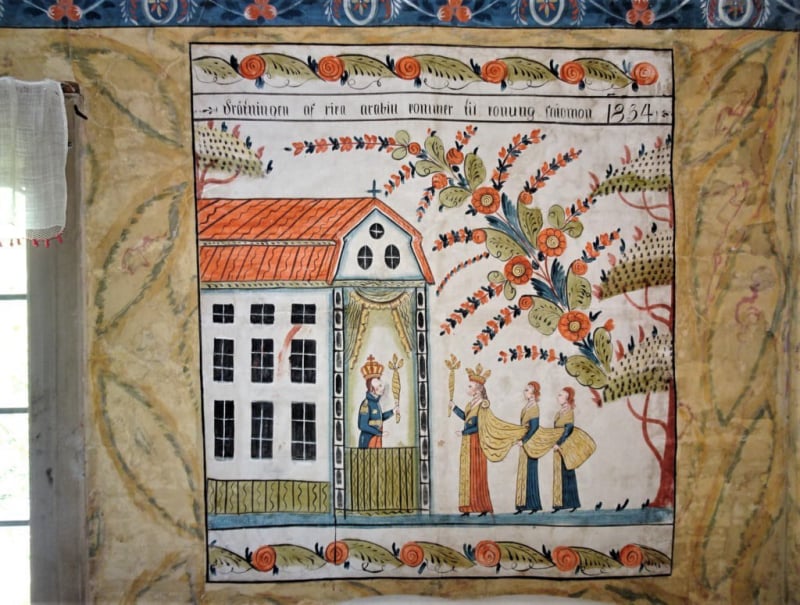 Drätningen af rika arabiu kommer til konung salomon 1834